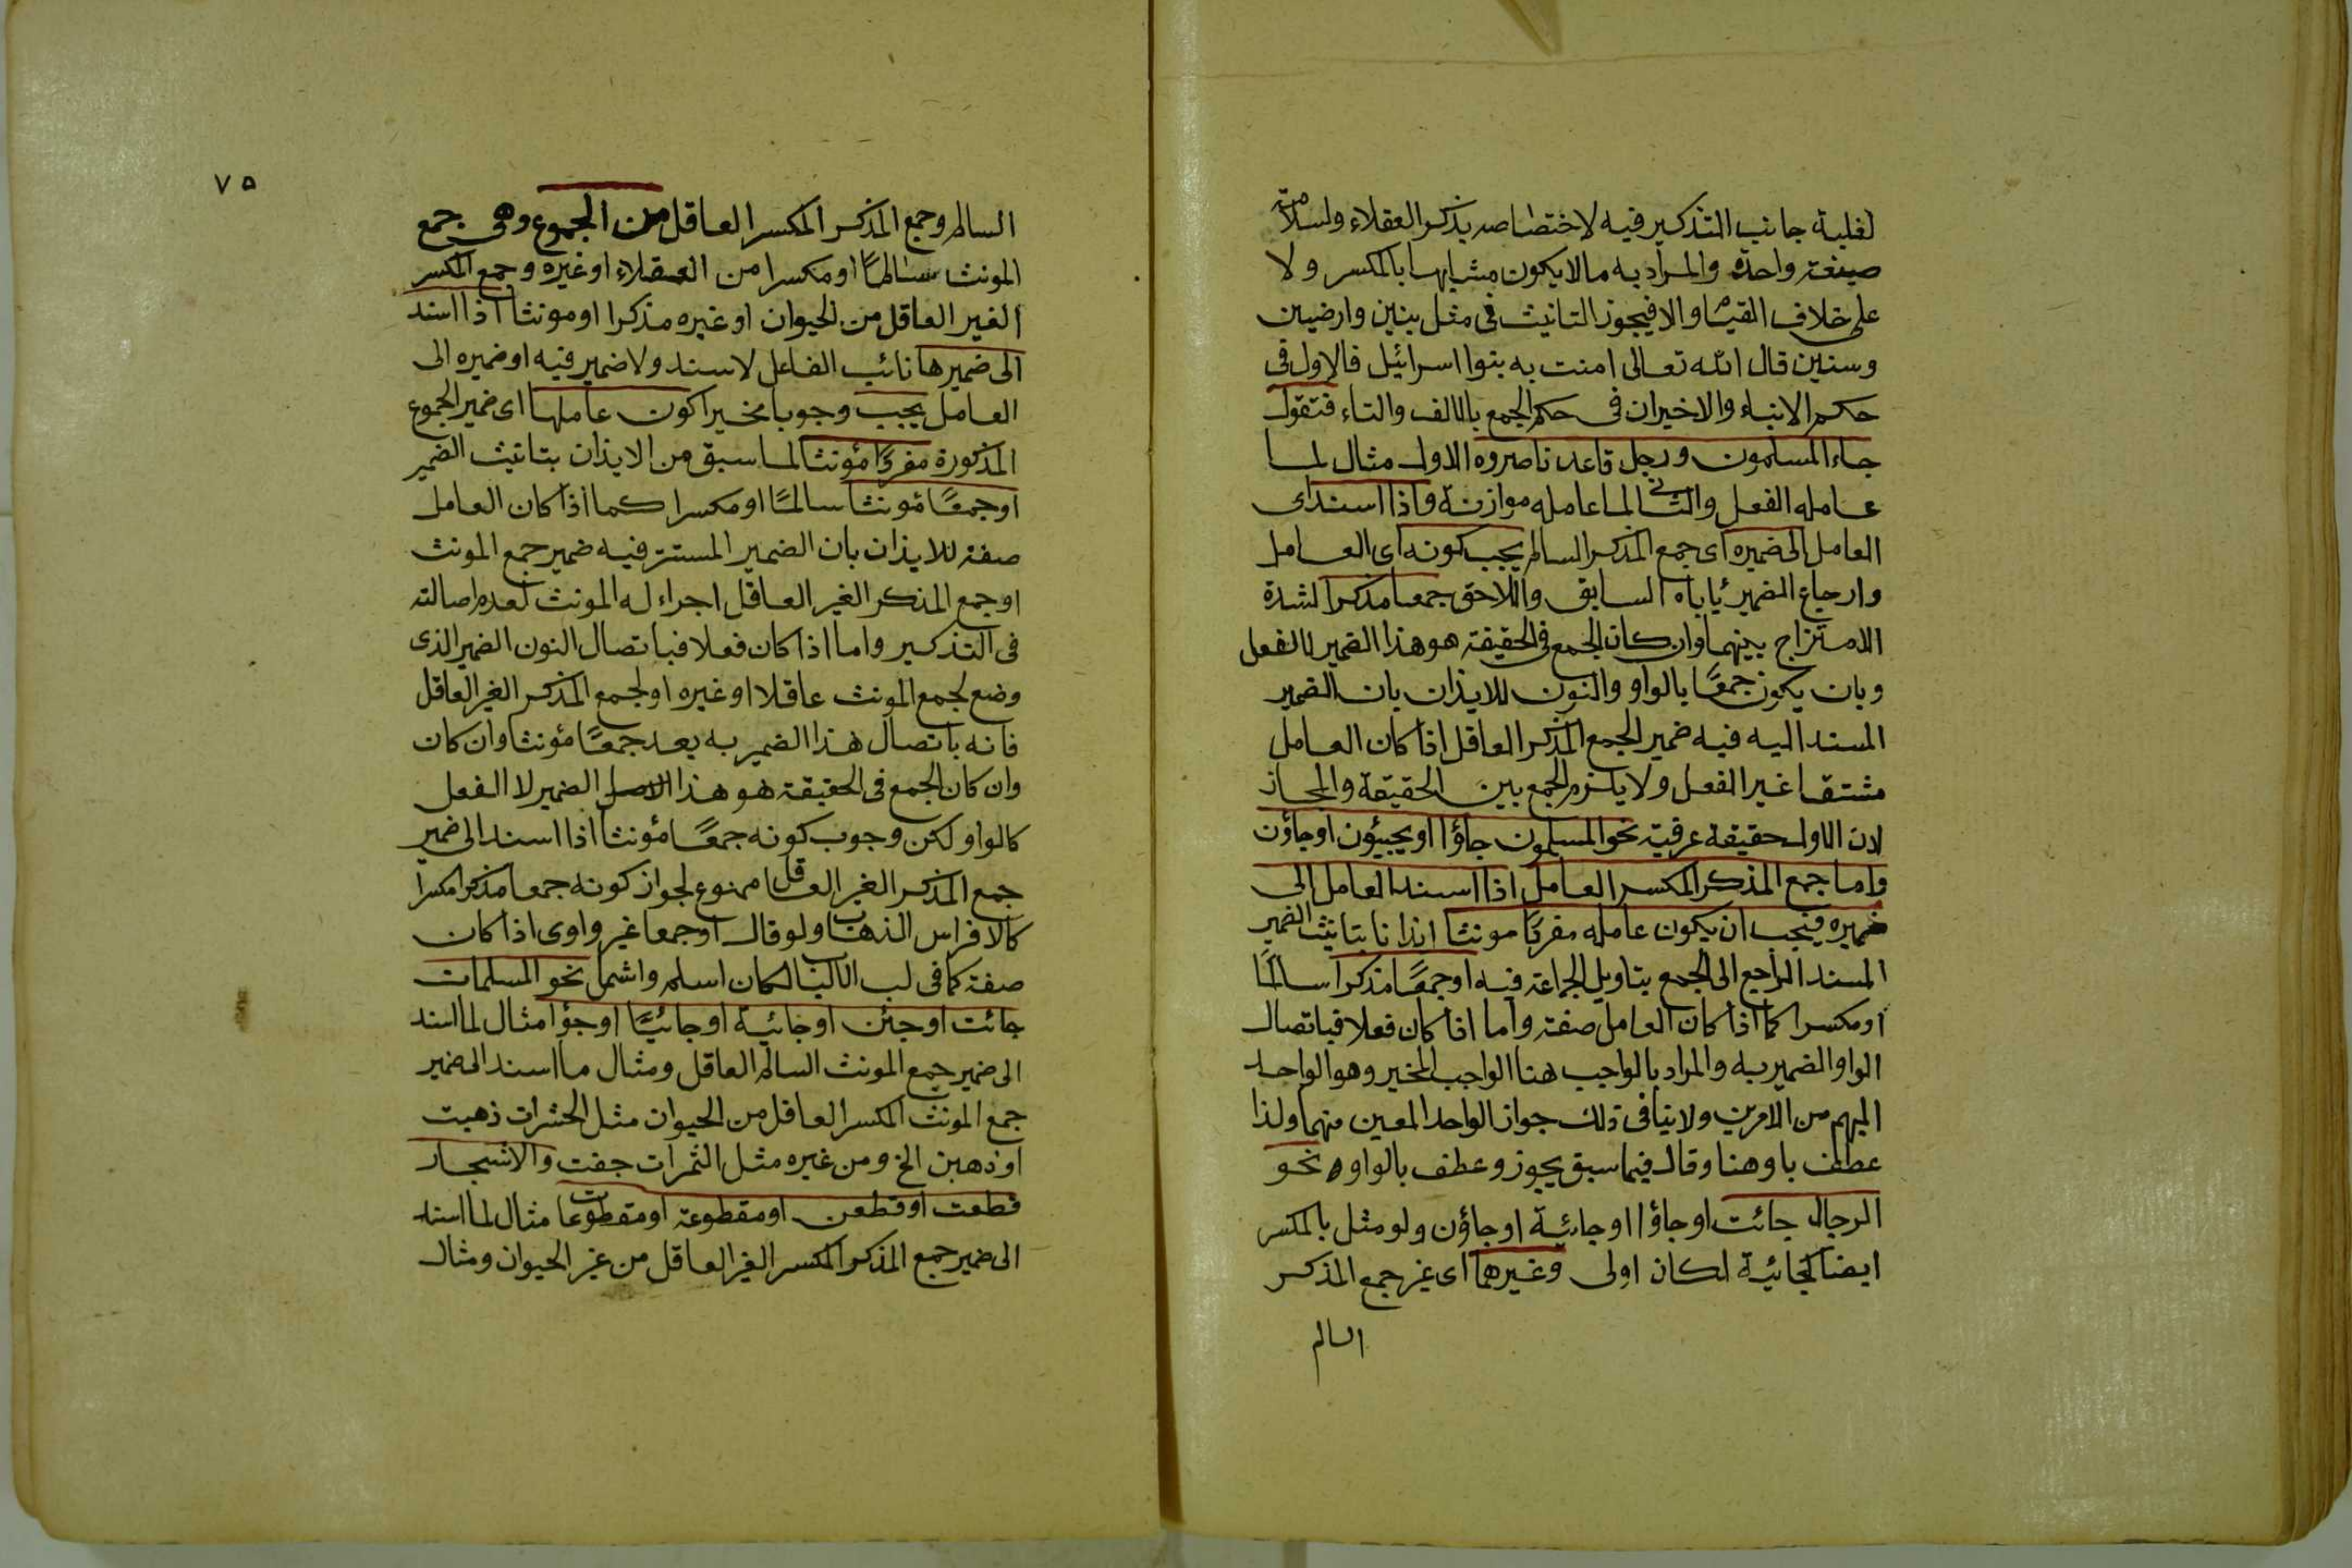 لغلبة جانب التذكير فيه لاختصاصه بذكر العقلاء ولسلامة
صيغة واحدة والمراد به مالا يكون مشابها بالمكسر ولا
على خلاف القياس والا فيجوز التانيث فى مثل بنين وارضين
وسنين قال الله تعالى امنت به بنوا اسرائيل فالاول فى
حكم الابناء والاخيران فى حكم الجمع بالالف والتاء فتقول
جاء المسلمون ورجل قاعد ناصروه الاول مثال لما
عامله الفعل والثانى لما عامله موازنة واذا اسند اى
العامل الى ضميره اى جمع المذكر السالم يجب كونه اى العامل
وارجاع الضمير ياباه السابق واللاحق جمعا مذكرا لشدة
الامتزاج بينهما وان كان الجمع فى الحقيقة هو هذا الضمير لا الفعل
وبان يكون جمعًا بالواو والنون للايذان بان الضمير
المسند اليه فيه ضمير الجمع المذكر العاقل اذا كان العامل
مشتقا غير الفعل ولا يلزم الجمع بين الحقيقة والمجاز
لان الاول حقيقة عرفية نحو المسلمون جاؤا او يجيئون او جاؤن
واما جمع المذكر المكسر العامل اذا اسند العامل الى
ضميره فيجب ان يكون عامله مفردًا مونثا ايذانا بتانيث الضمير
المسند الراجع الى الجمع بتاويل الجماعة فيه او جمعًا مذكرا سالمًا
او مكسرا كما اذا كان العامل صفة واما اذا كان فعلا فباتصال
الواو الضمير به والمراد بالواجب هنا الواجب المخير وهو الواحد
المبهم من الامرين ولا ينافى ذلك جواز الواحد المعين منهما ولذا
عطف باو هنا وقال فيما سبق يجوز وعطف بالواو نحو
الرجال جائت او جاؤا او جائية او جاؤن ولو مثل بالمكسر
ايضا كجائية لكان اولى وغيرهما اى غير جمع المذكر
السالم
٧٥
السالم وجمع المذكر المكسر العاقل من الجموع وهى جمع
المونث سالما او مكسرا من العقلاء او غيره وجمع المكسر
الغير العاقل من الحيوان او غيره مذكرا او مونثا اذا اسند
الى ضميرها نائب الفاعل لاسند ولا ضمير فيه او ضميره الى
العامل يجب وجوبا مخيرا كون عاملها اى ضمير الجموع
المذكورة مفردًا مؤنثا لما سبق من الايذان بتانيث الضمير
او جمعًا مؤنثا سالمًا او مكسرا كما اذا كان العامل
صفة للايذان بان الضمير المستتر فيه ضمير جمع المونث
او جمع المذكر الغير العاقل اجراء له المونث لعدم اصالته
فى التذكير واما اذا كان فعلا فباتصال النون الضمير الذى
وضع لجمع المونث عاقلا او غيره او لجمع المذكر الغير العاقل
فانه باتصال هذا الضمير به يعد جمعًا مؤنثا وان كان
وان كان الجمع فى الحقيقة هو هذا الضمير لا الفعل
كالواو لكن وجوب كونه جمعًا مؤنثا اذا اسند الى ضمير
جمع المذكر الغير العاقل ممنوع لجواز كونه جمعا مذكرا مكسرا
كالافراس الذهاب ولو قال او جمعا غير واوى اذا كان
صفة كما فى لب الالباب لكان اسلم واشمل نحو المسلمات
جائت او جئن او جائية او جائيًا او جؤا مثال لما اسند
الى ضمير جمع المونث السالم العاقل ومثال ما اسند الى ضمير
جمع المونث المكسر العاقل من الحيوان مثل الحشرات ذهبت
او ذهبن الخ ومن غيره مثل الثمرات جفت والاشجار
قطعت او قطعن او مقطوعة او مقطوعات مثال لما اسند
الى ضمير جمع المذكر المكسر الغير العاقل من غير الحيوان ومثال